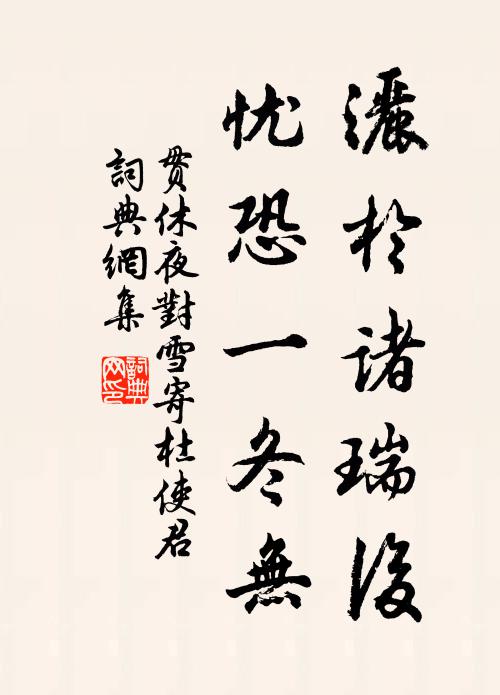 灑於諸瑞後
忧恐一冬無
貫休夜對雪寄杜使君
詞典網集
詞典
网印